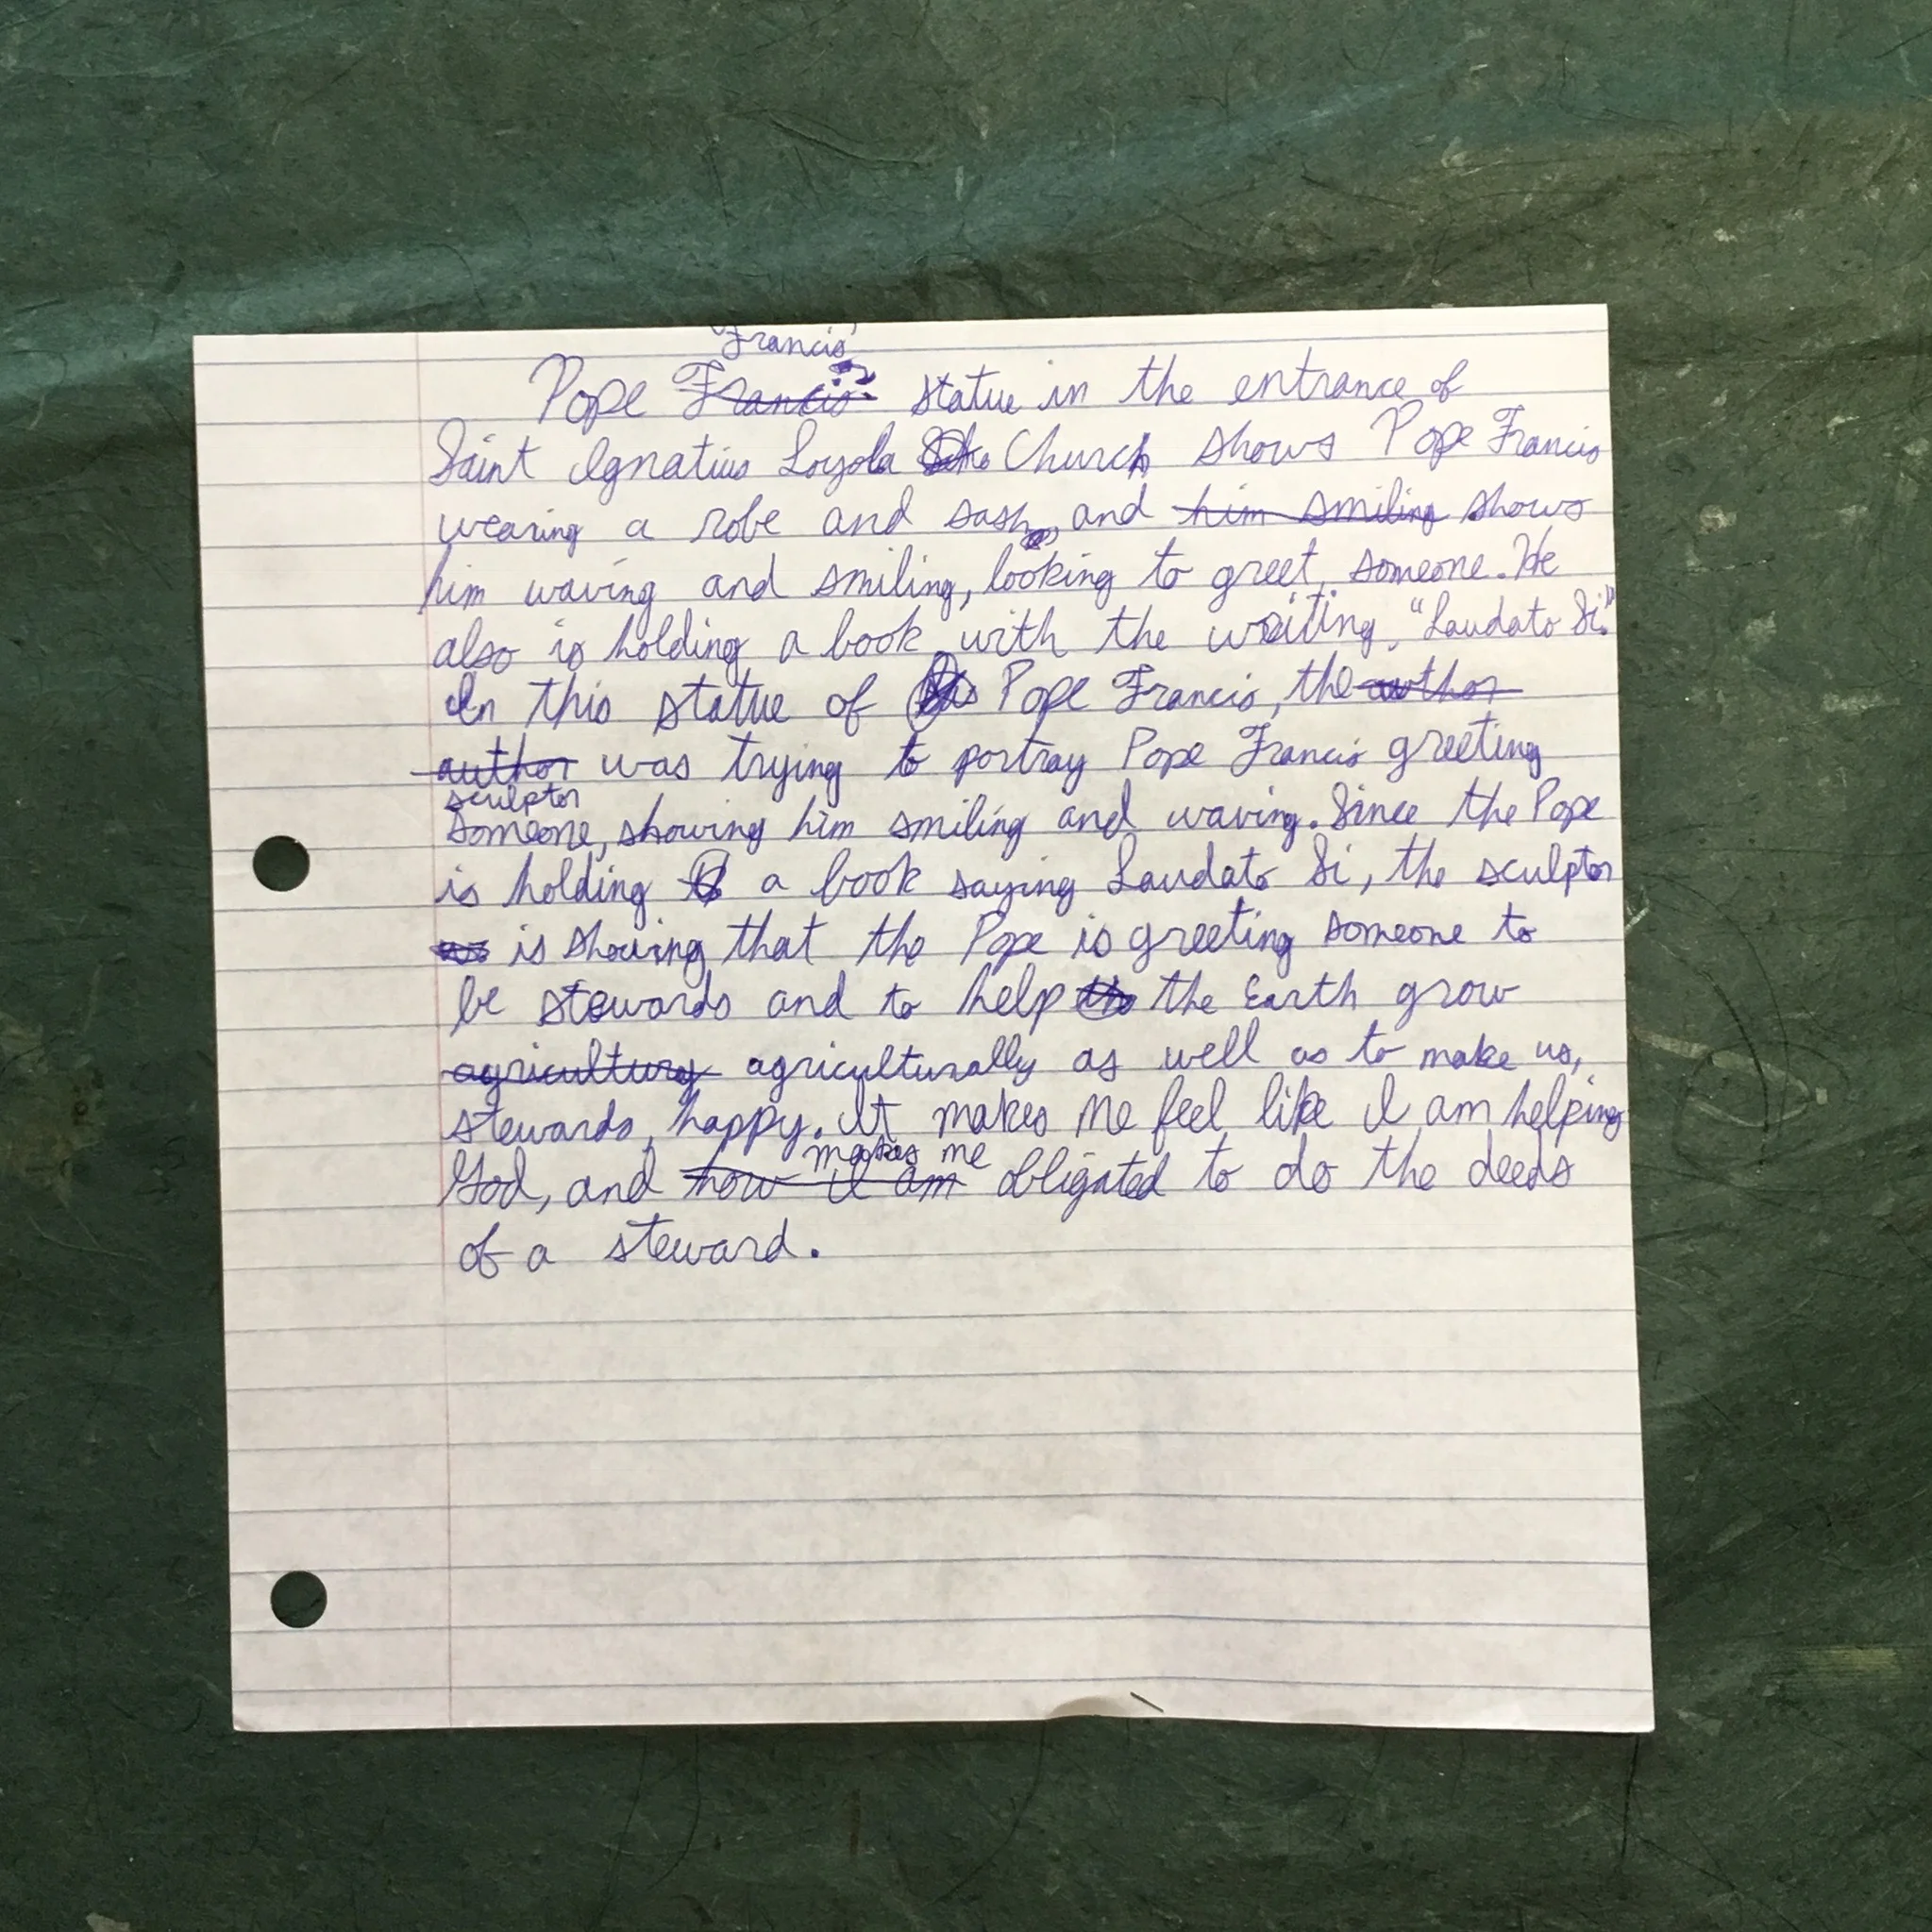 Francis'
Pope Francis' statue in the entrance of
Saint Ignatius Loyola Church shows Pope Francis
wearing a robe and sash, and him smiling shows
him waving and smiling, looking to greet someone. He
also is holding a book with the writing, "Laudato Si."
In this statue of Pope Francis, the author
author was trying to portray Pope Francis greeting
sculptor
someone, showing him smiling and waving. Since the Pope
is holding a book saying Laudato Si, the sculptor
is showing that the Pope is greeting someone to
be stewards and to help the Earth grow
agricultury agriculturally as well as to make us,
stewards, happy. It makes me feel like I am helping
makes me
God, and how I am obligated to do the deeds
of a steward.